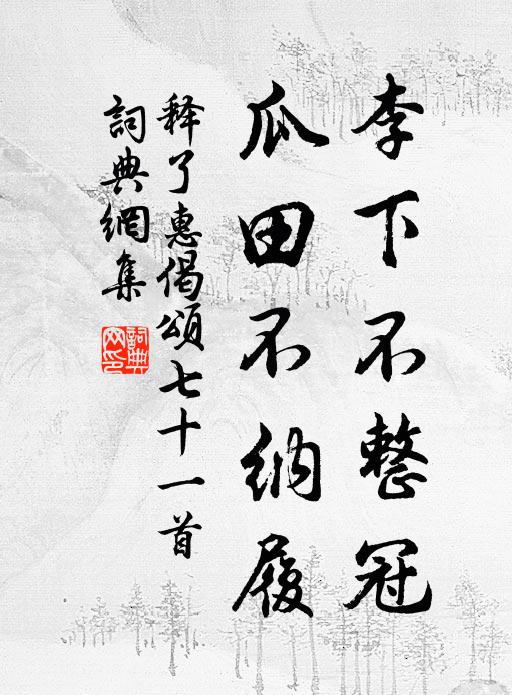 李下不整冠
瓜田不纳履
释了惠偈颂七十一首
詞典網集
詞典
网印